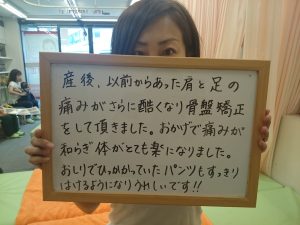 産後、以前からあった肩と足の
痛みがさらに酷くなり骨盤矯正
をして頂きました。おかげで痛みが
和らぎ体がとても楽になりました。
おしりでひっかかっていたパンツもすっきり
はけるようになりうれしいです!!